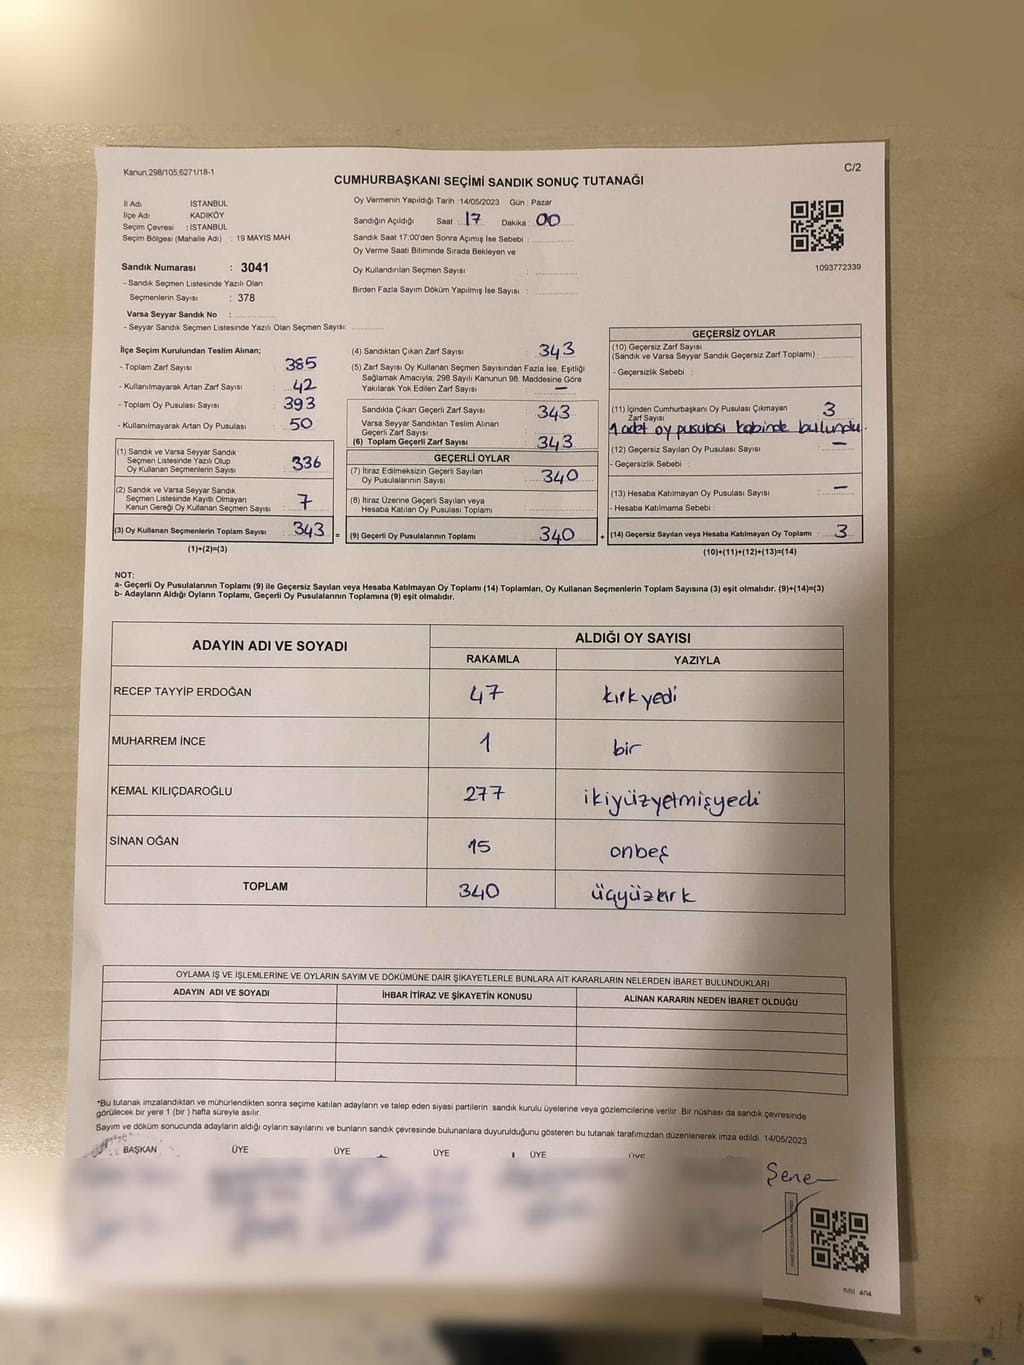 Kanun,298/105;6271/18-1
C/2
CUMHURBAŞKANI SEÇİMİ SANDIK SONUÇ TUTANAĞI
İl Adı İSTANBUL
İlçe Adı KADIKÖY
Seçim Çevresi : İSTANBUL
Seçim Bölgesi (Mahalle Adı) : 19 MAYIS MAH.
Oy Vermenin Yapıldığı Tarih : 14/05/2023 Gün : Pazar
Sandığın Açıldığı Saat : 17 Dakika : 00
Sandık Saat 17:00'den Sonra Açımış İse Sebebi :
Oy Verme Saati Bitiminde Sırada Bekleyen ve
Oy Kullandırılan Seçmen Sayısı :
Birden Fazla Sayım Döküm Yapılmış İse Sayısı :
1093772339
Sandık Numarası : 3041
- Sandık Seçmen Listesinde Yazılı Olan
Seçmenlerin Sayısı : 378
Varsa Seyyar Sandık No :
- Seyyar Sandık Seçmen Listesinde Yazılı Olan Seçmen Sayısı:
İlçe Seçim Kurulundan Teslim Alınan;
- Toplam Zarf Sayısı : 385
- Kullanılmayarak Artan Zarf Sayısı : 42
- Toplam Oy Pusulası Sayısı : 393
- Kullanılmayarak Artan Oy Pusulası : 50
(1) Sandık ve Varsa Seyyar Sandık
Seçmen Listesinde Yazılı Olup
Oy Kullanan Seçmenlerin Sayısı : 336
(2) Sandık ve Varsa Seyyar Sandık
Seçmen Listesinde Kayıtlı Olmayan
Kanun Gereği Oy Kullanan Seçmen Sayısı : 7
(3) Oy Kullanan Seçmenlerin Toplam Sayısı : 343 =
(1)+(2)=(3)
(4) Sandıktan Çıkan Zarf Sayısı : 343
(5) Zarf Sayısı Oy Kullanan Seçmen Sayısından Fazla İse, Eşitliği
Sağlamak Amacıyla; 298 Sayılı Kanunun 98. Maddesine Göre
Yakılarak Yok Edilen Zarf Sayısı : —
Sandıkta Çıkan Geçerli Zarf Sayısı : 343
Varsa Seyyar Sandıktan Teslim Alınan
Geçerli Zarf Sayısı :
(6) Toplam Geçerli Zarf Sayısı : 343
GEÇERLİ OYLAR
(7) İtiraz Edilmeksizin Geçerli Sayılan
Oy Pusulalarının Sayısı : 340
(8) İtiraz Üzerine Geçerli Sayılan veya
Hesaba Katılan Oy Pusulası Toplamı :
(9) Geçerli Oy Pusulalarının Toplamı : 340 +
GEÇERSİZ OYLAR
(10) Geçersiz Zarf Sayısı
(Sandık ve Varsa Seyyar Sandık Geçersiz Zarf Toplamı) :
- Geçersizlik Sebebi :
(11) İçinden Cumhurbaşkanı Oy Pusulası Çıkmayan
Zarf Sayısı : 3
1 adet oy pusulası kabinde bulundu.
(12) Geçersiz Sayılan Oy Pusulası Sayısı : —
- Geçersizlik Sebebi :
(13) Hesaba Katılmayan Oy Pusulası Sayısı : —
- Hesaba Katılmama Sebebi :
(14) Geçersiz Sayılan veya Hesaba Katılmayan Oy Toplamı : 3
(10)+(11)+(12)+(13)=(14)
NOT:
a- Geçerli Oy Pusulalarının Toplamı (9) ile Geçersiz Sayılan veya Hesaba Katılmayan Oy Toplamı (14) Toplamları, Oy Kullanan Seçmenlerin Toplam Sayısına (3) eşit olmalıdır. (9)+(14)=(3)
b- Adayların Aldığı Oyların Toplamı, Geçerli Oy Pusulalarının Toplamına (9) eşit olmalıdır.
ADAYIN ADI VE SOYADI
ALDIĞI OY SAYISI
RAKAMLA YAZIYLA
RECEP TAYYİP ERDOĞAN 47 kırkyedi
MUHARREM İNCE 1 bir
KEMAL KILIÇDAROĞLU 277 ikiyüzyetmişyedi
SİNAN OĞAN 15 onbeş
TOPLAM 340 üçyüzkırk
OYLAMA İŞ VE İŞLEMLERİNE VE OYLARIN SAYIM VE DÖKÜMÜNE DAİR ŞİKAYETLERLE BUNLARA AİT KARARLARIN NELERDEN İBARET BULUNDUKLARI
ADAYIN ADI VE SOYADI İHBAR İTİRAZ VE ŞİKAYETİN KONUSU ALINAN KARARIN NEDEN İBARET OLDUĞU
*Bu tutanak imzalandıktan ve mühürlendikten sonra seçime katılan adayların ve talep eden siyasi partilerin sandık kurulu üyelerine veya gözlemcilerine verilir .Bir nüshası da sandık çevresinde
görülecek bir yere 1 (bir ) hafta süreyle asılır.
Sayım ve döküm sonucunda adayların aldığı oyların sayılarını ve bunların sandık çevresinde bulunanlara duyurulduğunu gösteren bu tutanak tarafımızdan düzenlenerek imza edildi. 14/05/2023
BAŞKAN ÜYE ÜYE ÜYE ÜYE ÜYE
Şener